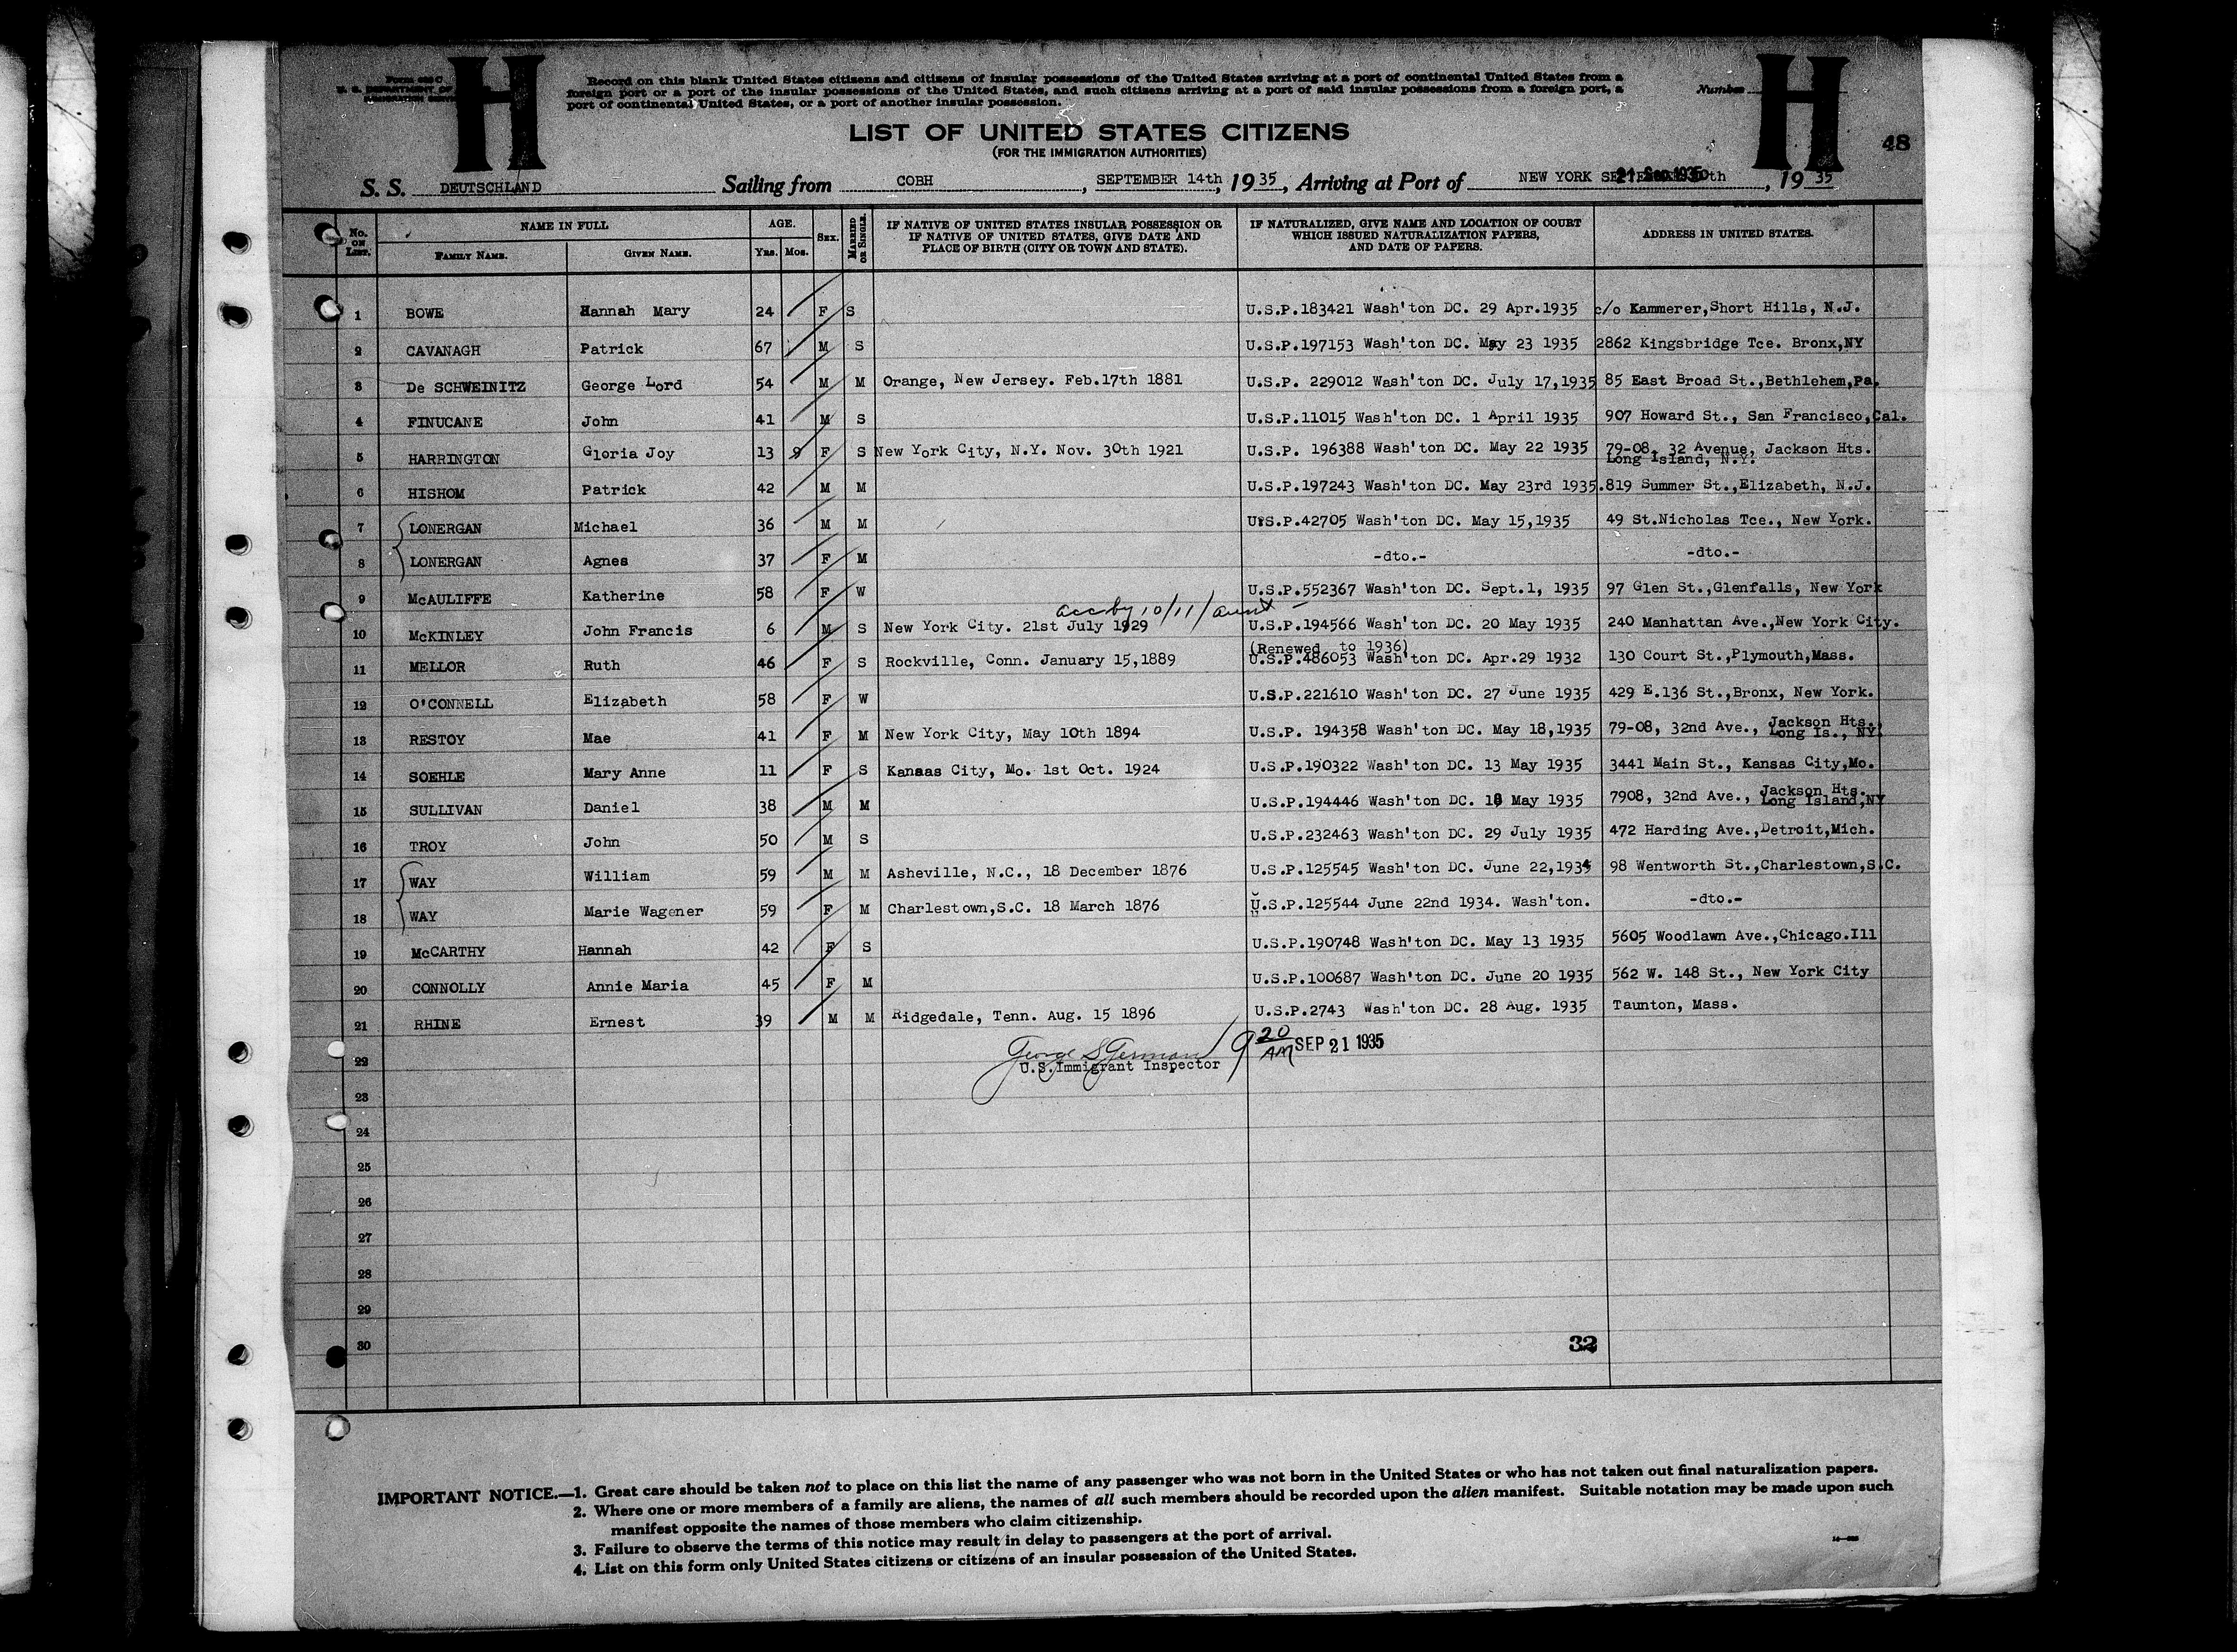 H
Record on this blank United States citizens and citizens of insular possessions of the United States arriving at a port of continental United States from a
foreign port or a port of the insular possessions of the United States, and such citizens arriving at a port of said insular possessions from a foreign port, a
port of continental United States, or a port of another insular possession.
Number
H
48
LIST OF UNITED STATES CITIZENS
(FOR THE IMMIGRATION AUTHORITIES)
S. S. DEUTSCHLAND Sailing from COBH, SEPTEMBER 14th, 1935, Arriving at Port of NEW YORK 21 Sep 1935, 1935
No. ON LIST. NAME IN FULL AGE. SEX. MARRIED OR SINGLE. IF NATIVE OF UNITED STATES INSULAR POSSESSION OR IF NATIVE OF UNITED STATES, GIVE DATE AND PLACE OF BIRTH (CITY OR TOWN AND STATE). IF NATURALIZED, GIVE NAME AND LOCATION OF COURT WHICH ISSUED NATURALIZATION PAPERS, AND DATE OF PAPERS. ADDRESS IN UNITED STATES.
FAMILY NAME. GIVEN NAME. YRS. MOS.
1 BOWE Hannah Mary 24 F S U.S.P.183421 Wash'ton DC. 29 Apr.1935 c/o Kammerer,Short Hills, N.J.
2 CAVANAGH Patrick 67 M S U.S.P.197153 Wash'ton DC. May 23 1935 2862 Kingsbridge Tce. Bronx,NY
3 De SCHWEINITZ George Lord 54 M M Orange, New Jersey. Feb.17th 1881 U.S.P. 229012 Wash'ton DC. July 17,1935 85 East Broad St.,Bethlehem,Pa.
4 FINUCANE John 41 M S U.S.P.11015 Wash'ton DC. 1 April 1935 907 Howard St., San Francisco,Cal.
5 HARRINGTON Gloria Joy 13 9 F S New York City, N.Y. Nov. 30th 1921 U.S.P. 196388 Wash'ton DC. May 22 1935 79-08, 32 Avenue, Jackson Hts.
Long Island, N.Y.
6 HISHOM Patrick 42 M M U.S.P.197243 Wash'ton DC. May 23rd 1935. 819 Summer St.,Elizabeth, N.J.
7 LONERGAN Michael 36 M M U.S.P.42705 Wash'ton DC. May 15,1935 49 St.Nicholas Tce., New York.
8 LONERGAN Agnes 37 F M -dto.- -dto.-
9 McAULIFFE Katherine 58 F W U.S.P.552367 Wash'ton DC. Sept.1, 1935 97 Glen St.,Glenfalls, New York
acc by 10/11/aunt -
10 McKINLEY John Francis 6 M S New York City. 21st July 1929 U.S.P.194566 Wash'ton DC. 20 May 1935 240 Manhattan Ave.,New York City.
(Renewed to 1936)
11 MELLOR Ruth 46 F S Rockville, Conn. January 15,1889 U.S.P.486053 Wash'ton DC. Apr.29 1932 130 Court St.,Plymouth,Mass.
12 O'CONNELL Elizabeth 58 F W U.S.P.221610 Wash'ton DC. 27 June 1935 429 E.136 St.,Bronx, New York.
13 RESTOY Mae 41 F M New York City, May 10th 1894 U.S.P. 194358 Wash'ton DC. May 18,1935 79-08, 32nd Ave., Jackson Hts.,
Long Is., NY.
14 SOEHLE Mary Anne 11 F S Kansas City, Mo. 1st Oct. 1924 U.S.P.190322 Wash'ton DC. 13 May 1935 3441 Main St., Kansas City,Mo.
15 SULLIVAN Daniel 38 M M U.S.P.194446 Wash'ton DC. 18 May 1935 7908, 32nd Ave., Jackson Hts.
Long Island,NY
16 TROY John 50 M S U.S.P.232463 Wash'ton DC. 29 July 1935 472 Harding Ave.,Detroit,Mich.
17 WAY William 59 M M Asheville, N.C., 18 December 1876 U.S.P.125545 Wash'ton DC. June 22,1934 98 Wentworth St.,Charlestown,S.C.
18 WAY Marie Wagener 59 F M Charlestown,S.C. 18 March 1876 U.S.P.125544 June 22nd 1934. Wash'ton. -dto.-
19 McCARTHY Hannah 42 F S U.S.P.190748 Wash'ton DC. May 13 1935 5605 Woodlawn Ave.,Chicago.Ill
20 CONNOLLY Annie Maria 45 F M U.S.P.100687 Wash'ton DC. June 20 1935 562 W. 148 St., New York City
21 RHINE Ernest 39 M M Ridgedale, Tenn. Aug. 15 1896 U.S.P.2743 Wash'ton DC. 28 Aug. 1935 Taunton, Mass.
22 George S German 9 20 AM SEP 21 1935
U.S.Immigrant Inspector
23
24
25
26
27
28
29
30 32
IMPORTANT NOTICE.—1. Great care should be taken not to place on this list the name of any passenger who was not born in the United States or who has not taken out final naturalization papers.
2. Where one or more members of a family are aliens, the names of all such members should be recorded upon the alien manifest. Suitable notation may be made upon such
manifest opposite the names of those members who claim citizenship.
3. Failure to observe the terms of this notice may result in delay to passengers at the port of arrival.
4. List on this form only United States citizens or citizens of an insular possession of the United States.